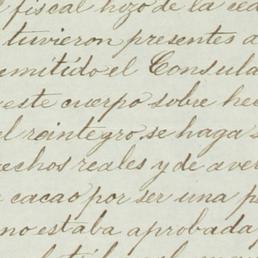 l fiscal hizo de la ced
tuvieron presentes a
emitido el Consula
este cuerpo sobre hec
el reintegro se haga s
echos reales y de ave
cacao por ser una p
no estaba aprobada